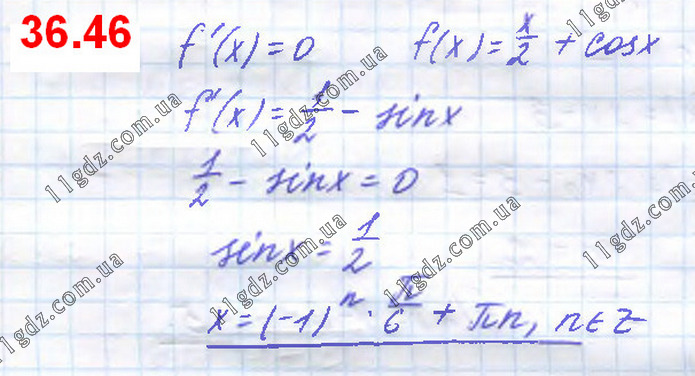 36.46
f'(x) = 0 f(x) = x/2 + cosx
f'(x) = 1/2 - sinx
1/2 - sinx = 0
sinx = 1/2
x = (-1)^n · π/6 + πn, n∈Z
11gdz.com.ua
11gdz.com.ua
11gdz.com.ua
11gdz.com.ua
11gdz.com.ua
11gdz.com.ua
11gdz.com.ua